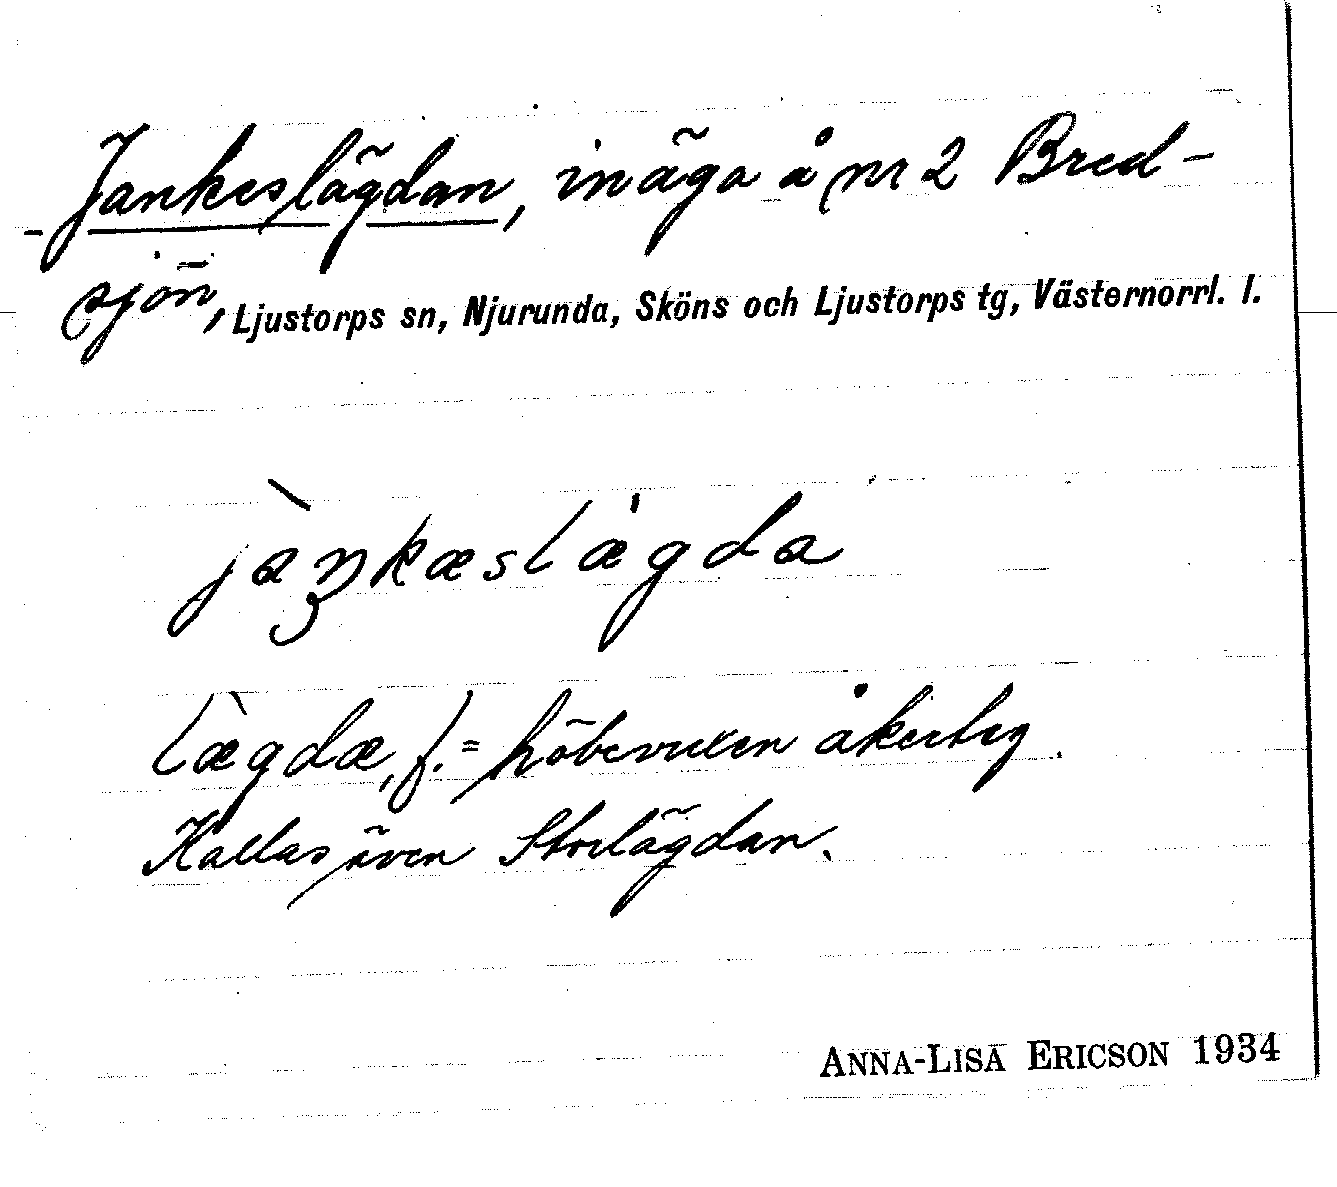 Jankeslägdan, inäga å nr 2 Bred-
sjön, Ljustorps sn, Njurunda, Sköns och Ljustorps tg, Västernorrl. l.
jàŋkæslæ̀gda
læ̀gdæ, f. = höbevuxen åkerteg.
Kallas även Storlägdan.
ANNA-LISA ERICSON 1934